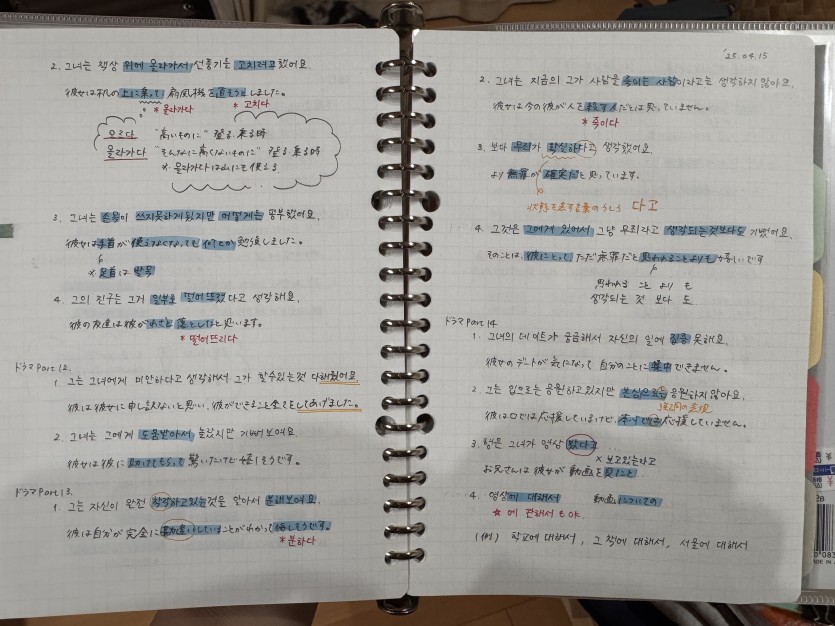 2. 그녀는 책상 위에 올라가서 선풍기를 고치려고 했어요.
彼女は机の上に乗って扇風機を直そうとしました。
* 올라가다 * 고치다
오르다 "高いものに" 登る・乗る時
올라가다 "そんなに高くないものに" 登る・乗る時
* 올라가다は山にも使える
3. 그녀는 손목이 쓰지못하게 됐지만 어떻게든 공부했어요.
彼女は手首が使えなくなっても何とか勉強しました。
* 足首は 발목
4. 그의 친구는 그거 일부로 떨어뜨렸다고 생각해요.
彼の友達は彼がわざと落としたと思います。
* 떨어뜨리다
ドラマPart 12.
1. 그는 그녀에게 미안하다고 생각해서 그가 할수있는것 다해줬어요.
彼は彼女に申し訳ないと思い、彼ができること全てをしてあげました。
2. 그녀는 그에게 도움받아서 놀랐지만 기뻐보여요.
彼女は彼に助けてもらって驚いたけど嬉しそうです。
ドラマPart 13.
1. 그는 자신이 완전 착각하고있는것을 알아서 분해보여요.
彼は自分が完全に勘違いしていることがわかって悔しそうです。
* 분하다
'25.04.15
2. 그녀는 지금의 그가 사람을 죽이는 사람이라고는 생각하지 않아요.
彼女は今の彼が人を殺す人だとは思っていません。
* 죽이다
3. 보다 무죄가 확실하다고 생각했어요.
より無罪が確実だと思っています。
状態を表す言葉のうしろ 다고
4. 그것은 그에게 있어서 그냥 무죄라고 생각되는것보다도 기뻤어요.
そのことは、彼にとってただ無罪だと思われることよりも嬉しいです
思われる こと よりも
생각되는 것 보다 도
ドラマPart 14.
1. 그녀의 데이트가 궁금해서 자신의 일에 집중 못해요.
彼女のデートが気になって自分のことに集中できません。
2. 그는 입으로는 응원하고있지만 본심으로는 응원하지않아요.
彼は口では応援していますけど、本心では応援していません。
3. 형은 그녀가 영상 봤다고
× 보고있는다고
お兄さんは彼女が動画を見たこと
4. 영상에 대해서 動画についての
☆ 에 관해서 も OK
(例) 학교에 대해서, 그 책에 대해서, 서울에 대해서